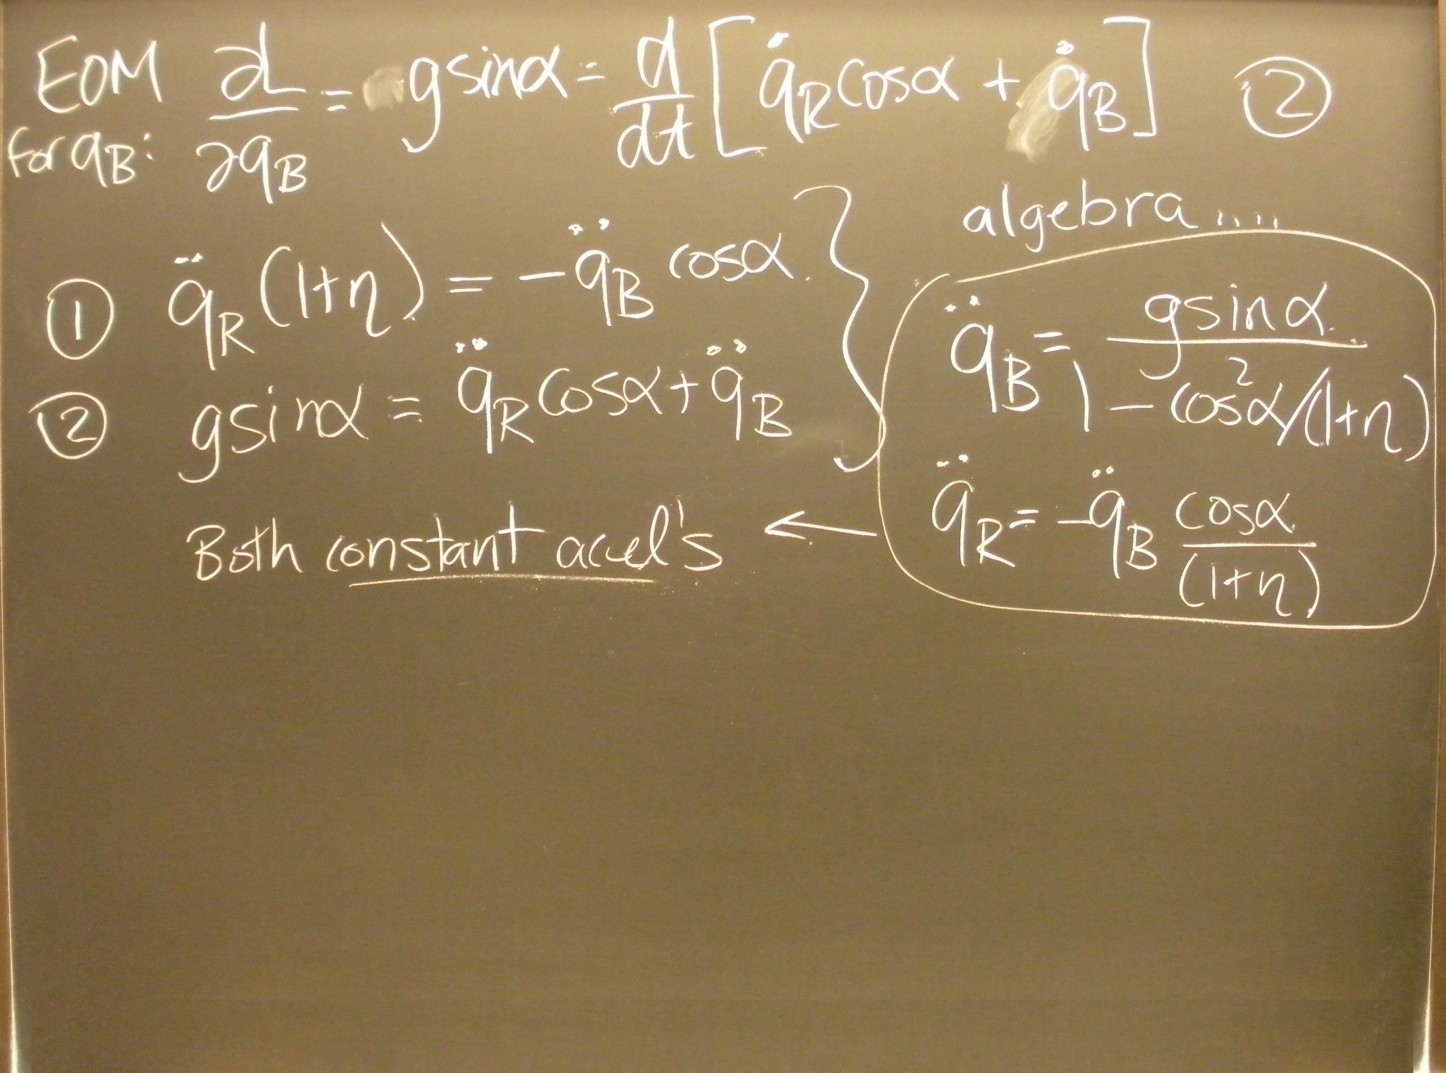 EOM for qB: ∂L/∂qB = g sinα = d/dt [q̇R cosα + q̇B] ②
algebra....
① q̈R (1+η) = -q̈B cosα
② g sinα = q̈R cosα + q̈B
q̈B = g sinα / 1 - cos²α/(1+η)
q̈R = -q̈B cosα/(1+η)
Both constant accel's ←